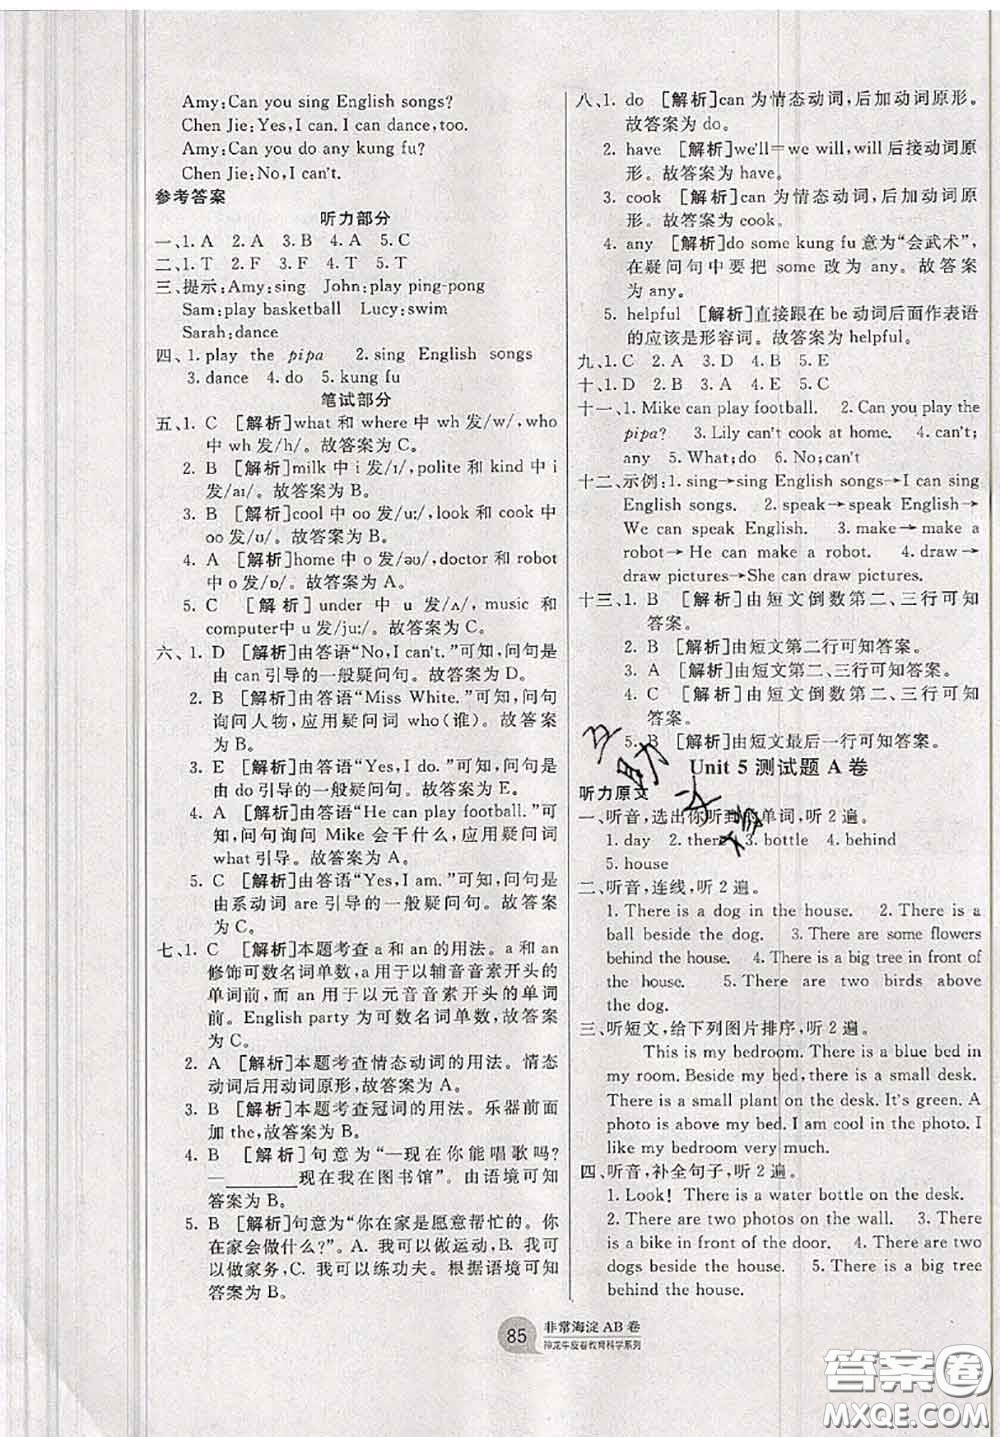 Amy:Can you sing English songs?
Chen Jie:Yes,I can. I can dance,too.
Amy:Can you do any kung fu?
Chen Jie:No,I can't.
参考答案
听力部分
一、1. A 2. A 3. B 4. A 5. C
二、1. T 2. F 3. F 4. T 5. T
三、提示:Amy:sing John:play ping-pong
Sam:play basketball Lucy:swim
Sarah:dance
四、1. play the pipa 2. sing English songs
3. dance 4. do 5. kung fu
笔试部分
五、1. C [解析]what 和 where 中 wh 发/w/，who
中 wh 发/h/。故答案为 C。
2. B [解析]milk 中 i 发/ɪ/，polite 和 kind 中 i
发/aɪ/。故答案为 B。
3. B [解析]cool 中 oo 发/u:/，look 和 cook 中
oo 发/ʊ/。故答案为 B。
4. A [解析]home 中 o 发/əʊ/，doctor 和 robot
中 o 发/ɒ/。故答案为 A。
5. C [解析]under 中 u 发/ʌ/，music 和
computer中 u 发/ju:/。故答案为 C。
六、1. D [解析]由答语“No,I can't.”可知，问句是
由 can引导的一般疑问句。故答案为 D。
2. B [解析]由答语“Miss White.”可知，问句
询问人物，应用疑问词 who(谁)。故答案
为 B。
3. E [解析]由答语“Yes,I do.”可知，问句是
由 do引导的一般疑问句。故答案为 E。
4. A [解析]由答语“He can play football.”可
知，问句询问 Mike 会干什么，应用疑问词
what 引导。故答案为 A。
5. C [解析]由答语“Yes,I am.”可知，问句是
由系动词 are 引导的一般疑问句。故答案
为 C。
七、1. C [解析]本题考查 a 和 an 的用法。a 和 an
修饰可数名词单数，a 用于以辅音音素开头的
单词前，而 an 用于以元音音素开头的单词
前。English party 为可数名词单数，故答案
为 C。
2. A [解析]本题考查情态动词的用法。情态
动词后用动词原形，故答案为 A。
3. B [解析]本题考查冠词的用法。乐器前面
加 the，故答案为 B。
4. B [解析]句意为“—现在你能唱歌吗?
—________现在我在图书馆”。由语境可知
答案为 B。
5. B [解析]句意为“你在家是愿意帮忙的。你
在家会做什么?”。A. 我可以做运动，B. 我可
以做家务，C. 我可以练功夫。根据语境可知
答案为 B。
八、1. do [解析]can 为情态动词，后加动词原形。
故答案为 do。
2. have [解析]we'll=we will，will 后接动词原
形。故答案为 have。
3. cook [解析]can 为情态动词，后加动词原
形。故答案为 cook。
4. any [解析]do some kung fu 意为“会武术”，
在疑问句中要把 some 改为 any。故答案
为 any。
5. helpful [解析]直接跟在 be 动词后面作表语
的应该是形容词。故答案为 helpful。
九、1. C 2. A 3. D 4. B 5. E
十、1. D 2. B 3. A 4. E 5. C
十一、1. Mike can play football. 2. Can you play the
pipa? 3. Lily can't cook at home. 4. can't;
any 5. What;do 6. No;can't
十二、示例:1. sing→sing English songs→I can sing
English songs. 2. speak→speak English→
We can speak English. 3. make→make a
robot→He can make a robot. 4. draw→
draw pictures→She can draw pictures.
十三、1. B [解析]由短文倒数第二、三行可知
答案。
2. B [解析]由短文第二行可知答案。
3. A [解析]由短文第二、三行可知答案。
4. C [解析]由短文倒数第二、三行可知
答案。
5. B [解析]由短文最后一行可知答案。
Unit 5 测试题 A 卷
听力原文
一、听音，选出你听到的单词，听 2 遍。
1. day 2. there 3. bottle 4. behind
5. house
二、听音，连线，听 2 遍。
1. There is a dog in the house. 2. There is a
ball beside the dog. 3. There are some flowers
behind the house. 4. There is a big tree in front of
the house. 5. There are two birds above
the dog.
三、听短文，给下列图片排序，听 2 遍。
This is my bedroom. There is a blue bed in
my room. Beside my bed, there is a small desk.
There is a small plant on the desk. It's green. A
photo is above my bed. I am cool in the photo. I
like my bedroom very much.
四、听音，补全句子，听 2 遍。
1. Look! There is a water bottle on the desk.
2. There are two photos on the wall. 3. There
is a bike in front of the door. 4. There are two
dogs beside the house. 5. There is a big tree
behind the house.
85
非常海淀 AB 卷
神龙牛皮卷教育科学系列
答案卷
MXQE.COM